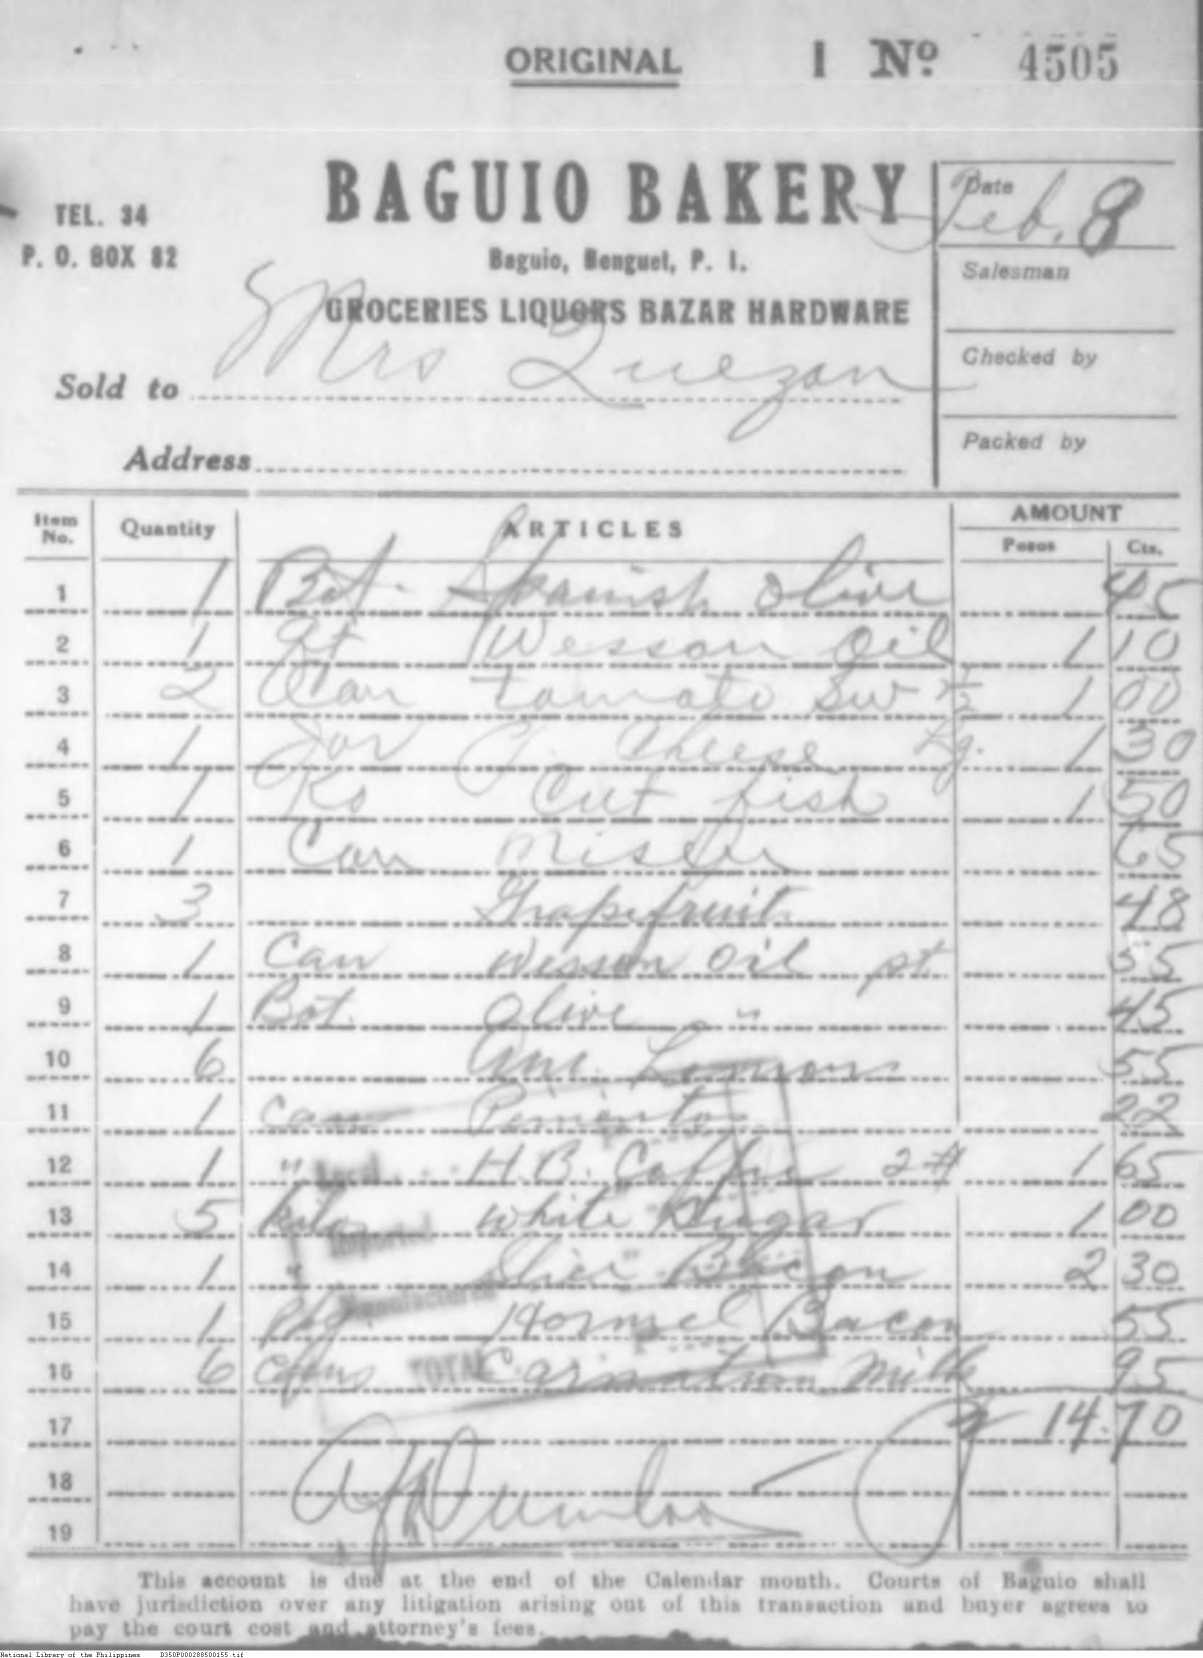 ORIGINAL I Nº 4505
BAGUIO BAKERY
TEL. 34
P. O. BOX 82
Baguio, Benguet, P. I.
GROCERIES LIQUORS BAZAR HARDWARE
Date Feb. 8
Salesman
Checked by
Packed by
Sold to Mrs Quezon
Address
Item No. Quantity ARTICLES AMOUNT
Pesos Cts.
1 1 Bot. Spanish Olive 45
2 1 Qt Wesson Oil 1 10
3 2 Can tomato Sw 2 1/2 1 00
4 1 Jar Cheese Lg. 1 30
5 1 Ko Cut fish 1 50
6 1 Can 65
7 3 Grapefruit 48
8 1 Can Wesson Oil pt 55
9 1 Bot. Olive " 45
10 6 Am. Lemons 55
11 1 Can Pimientos 22
12 1 " H.B. Coffee 2# 1 65
13 5 kilo White Sugar 1 00
14 1 " Slice Bacon 2 30
15 1 Pkg. Hormel Bacon 55
16 6 Carnation Milk 95
17 14.70
18
19
Local
Imported
Manufactured
TOTAL
This account is due at the end of the Calendar month. Courts of Baguio shall
have jurisdiction over any litigation arising out of this transaction and buyer agrees to
pay the court cost and attorney's fees.
National Library of the Philippines D350P000288500155.tif